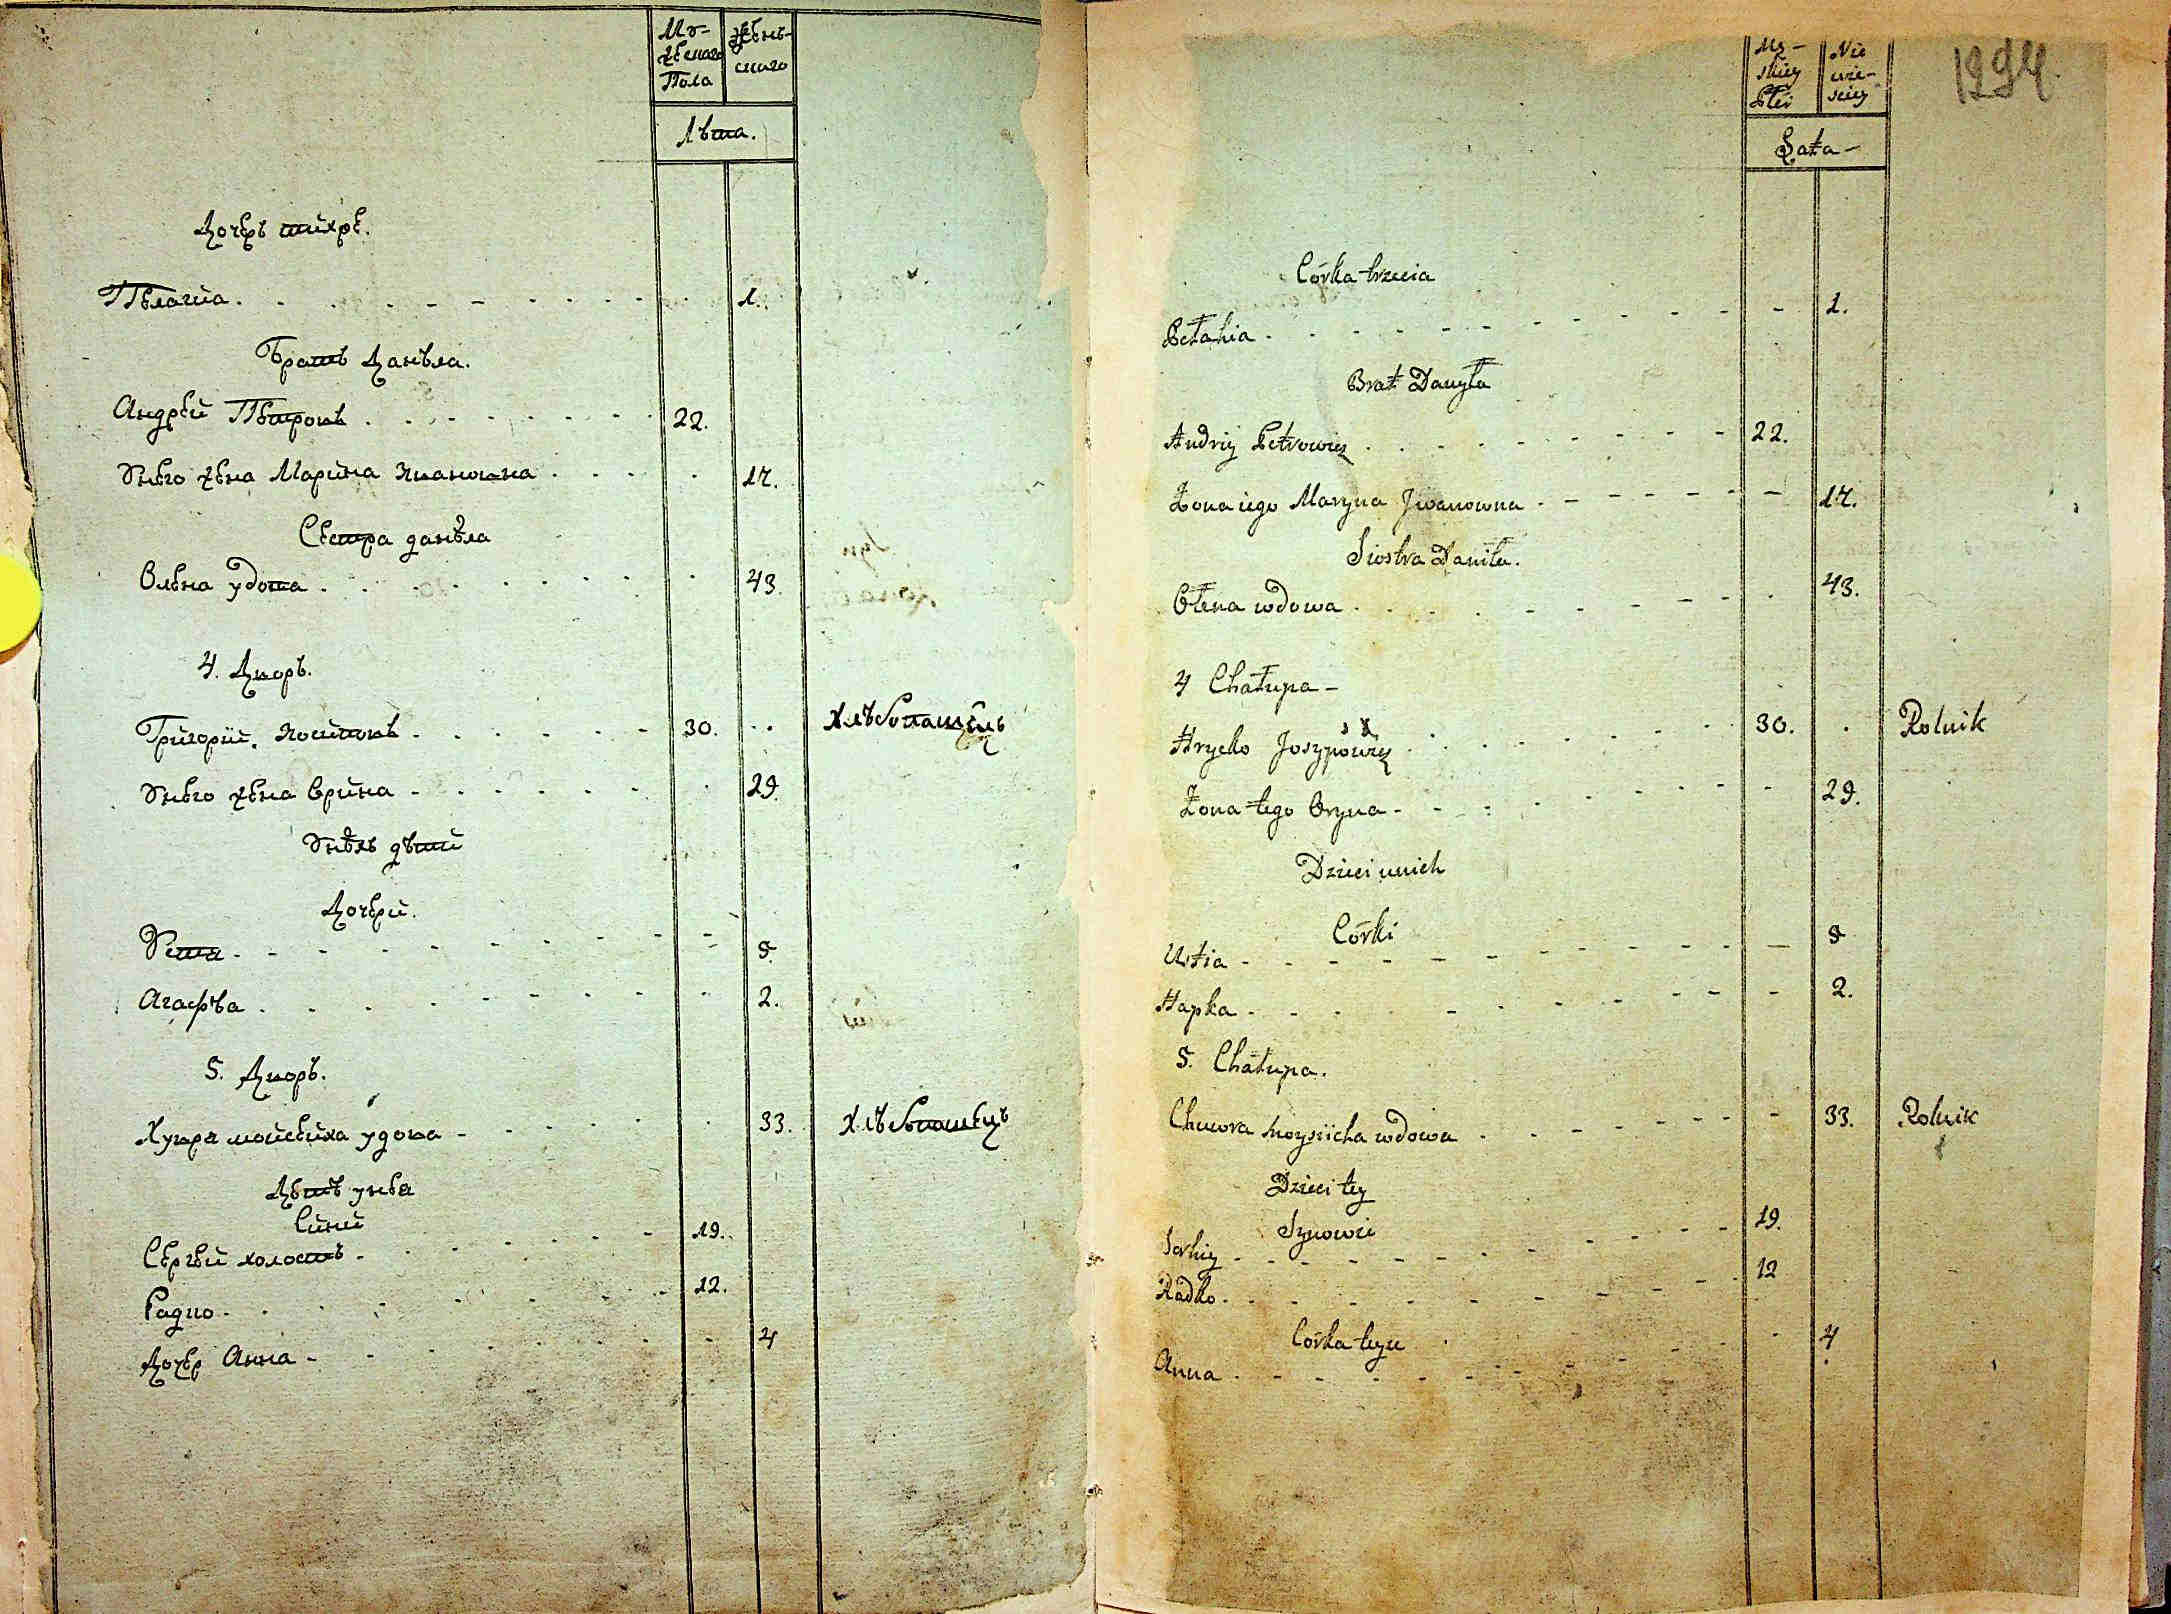 Му-
жеского
Пола
Жень-
скаго
Лѣта.
Дочерь тихрѣ.
Пелагия. 1.
Братъ Данѣла.
Андрей Петровъ 22.
Унего жена Марина Ивановна 17.
Сестра данѣла
Олена удова 43.
4. Дворъ.
Григорій. 30. Хлѣбопашецъ
Унего жена Орина 29.
Унихъ дѣти
Дочери.
Устя 5.
Агафѣа 2.
5. Дворъ.
Хувра мойсеиха удова 33. Хлѣбопашецъ
Дѣтѣ унеа
Сини
Сергѣй холостъ 19.
Радко 12.
Дочер Анна 4
Mę-
skiey
Płci
Nie
wie-
sciey
1294.
Łata
Córka trzecia
Pełahia 1.
Brat Danyła
Andriy Petrowicz 22.
Żona iego Maryna Jwanowna 17.
Siostra Daniła.
Ołena wdowa 43.
4 Chałupa
Hrycko Josypowicz 30. Rolnik
Żona tego Oryna 29.
Dzieci unich
Córki
Ustia 5
Hapka 2.
5. Chałupa.
Chwora Moysiicha wdowa 33. Rolnik
Dzieci tey
Synowie
Serhiy 19.
Radko 12
Córka teyże
Anna 4